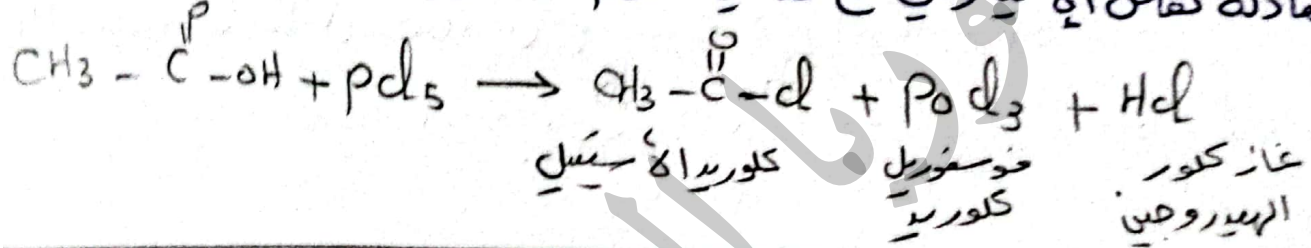 O
CH3 - C -OH + pcl5 → CH3 - C - cl + Pocl3 + Hcl
كلوريد الأسيتيل فوسفوريل غاز كلور
كلوريد الهيدروجين